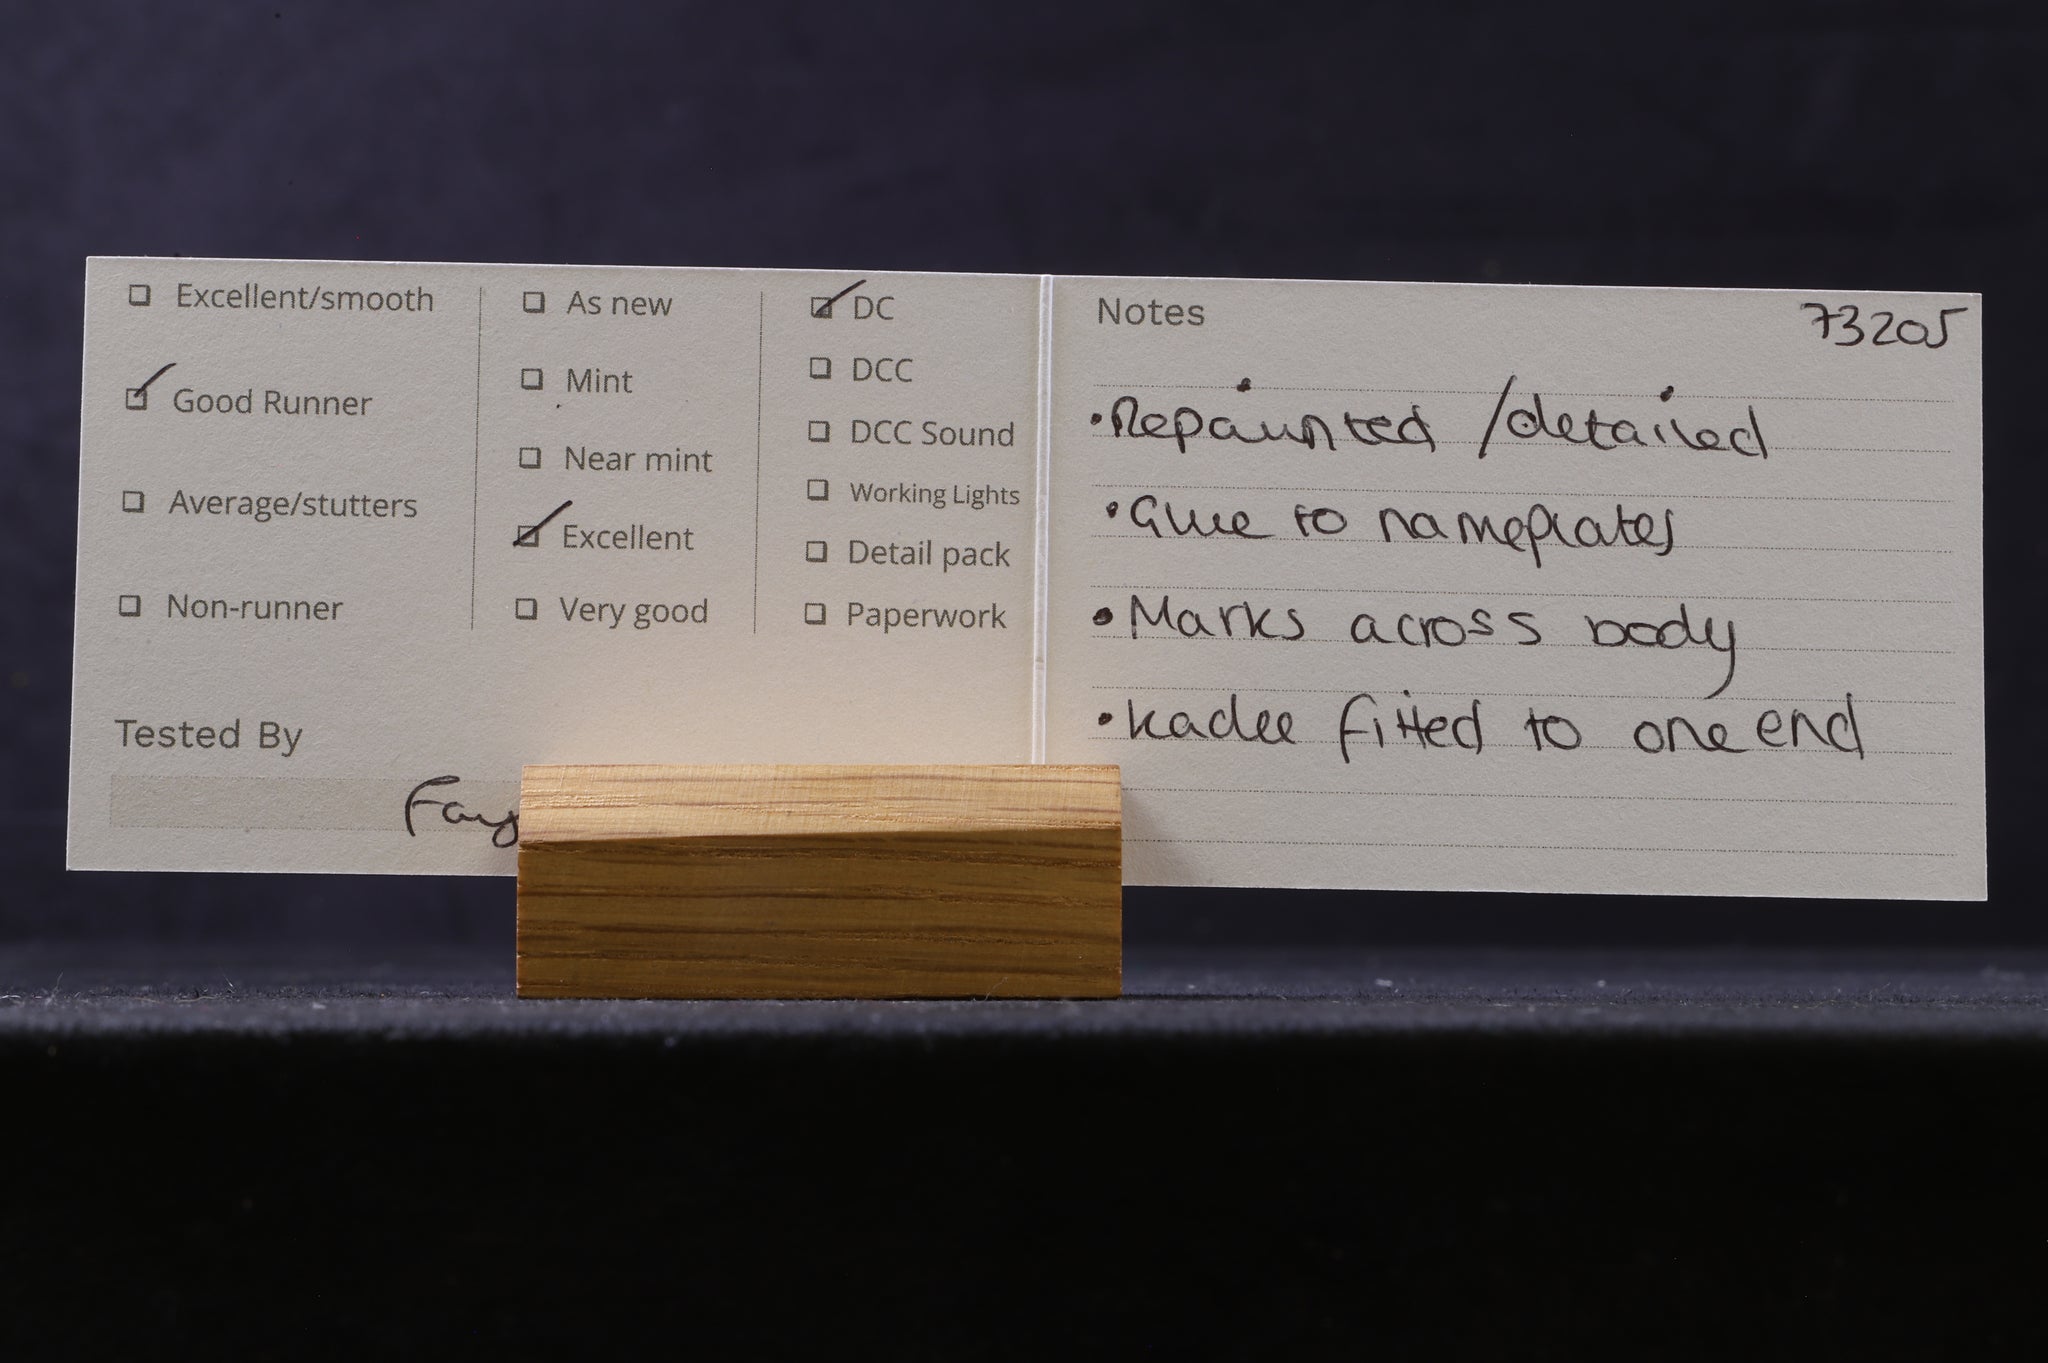 ☐ Excellent/smooth
☑ Good Runner
☐ Average/stutters
☐ Non-runner
☐ As new
☐ Mint
☐ Near mint
☑ Excellent
☐ Very good
☑ DC
☐ DCC
☐ DCC Sound
☐ Working Lights
☐ Detail pack
☐ Paperwork
Tested By
Fay
Notes
73205
• Repainted / detailed
• Glue to nameplates
• Marks across body
• Kadee fitted to one end